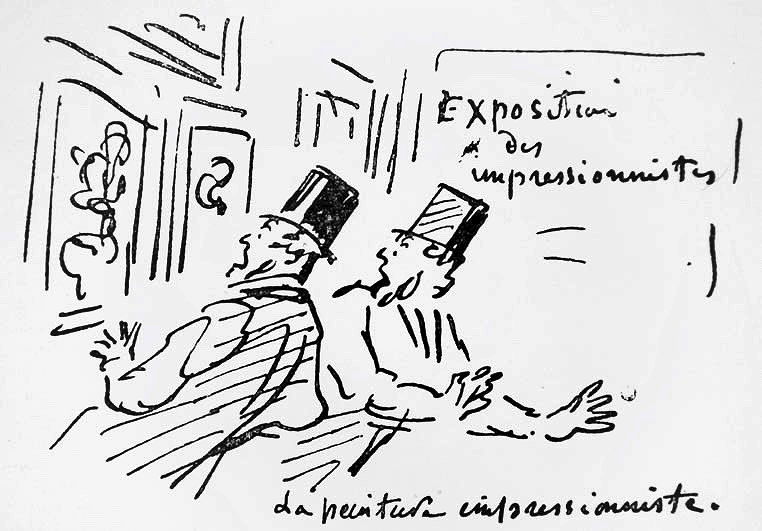 Exposition
des
impressionnistes
La peinture impressionniste.